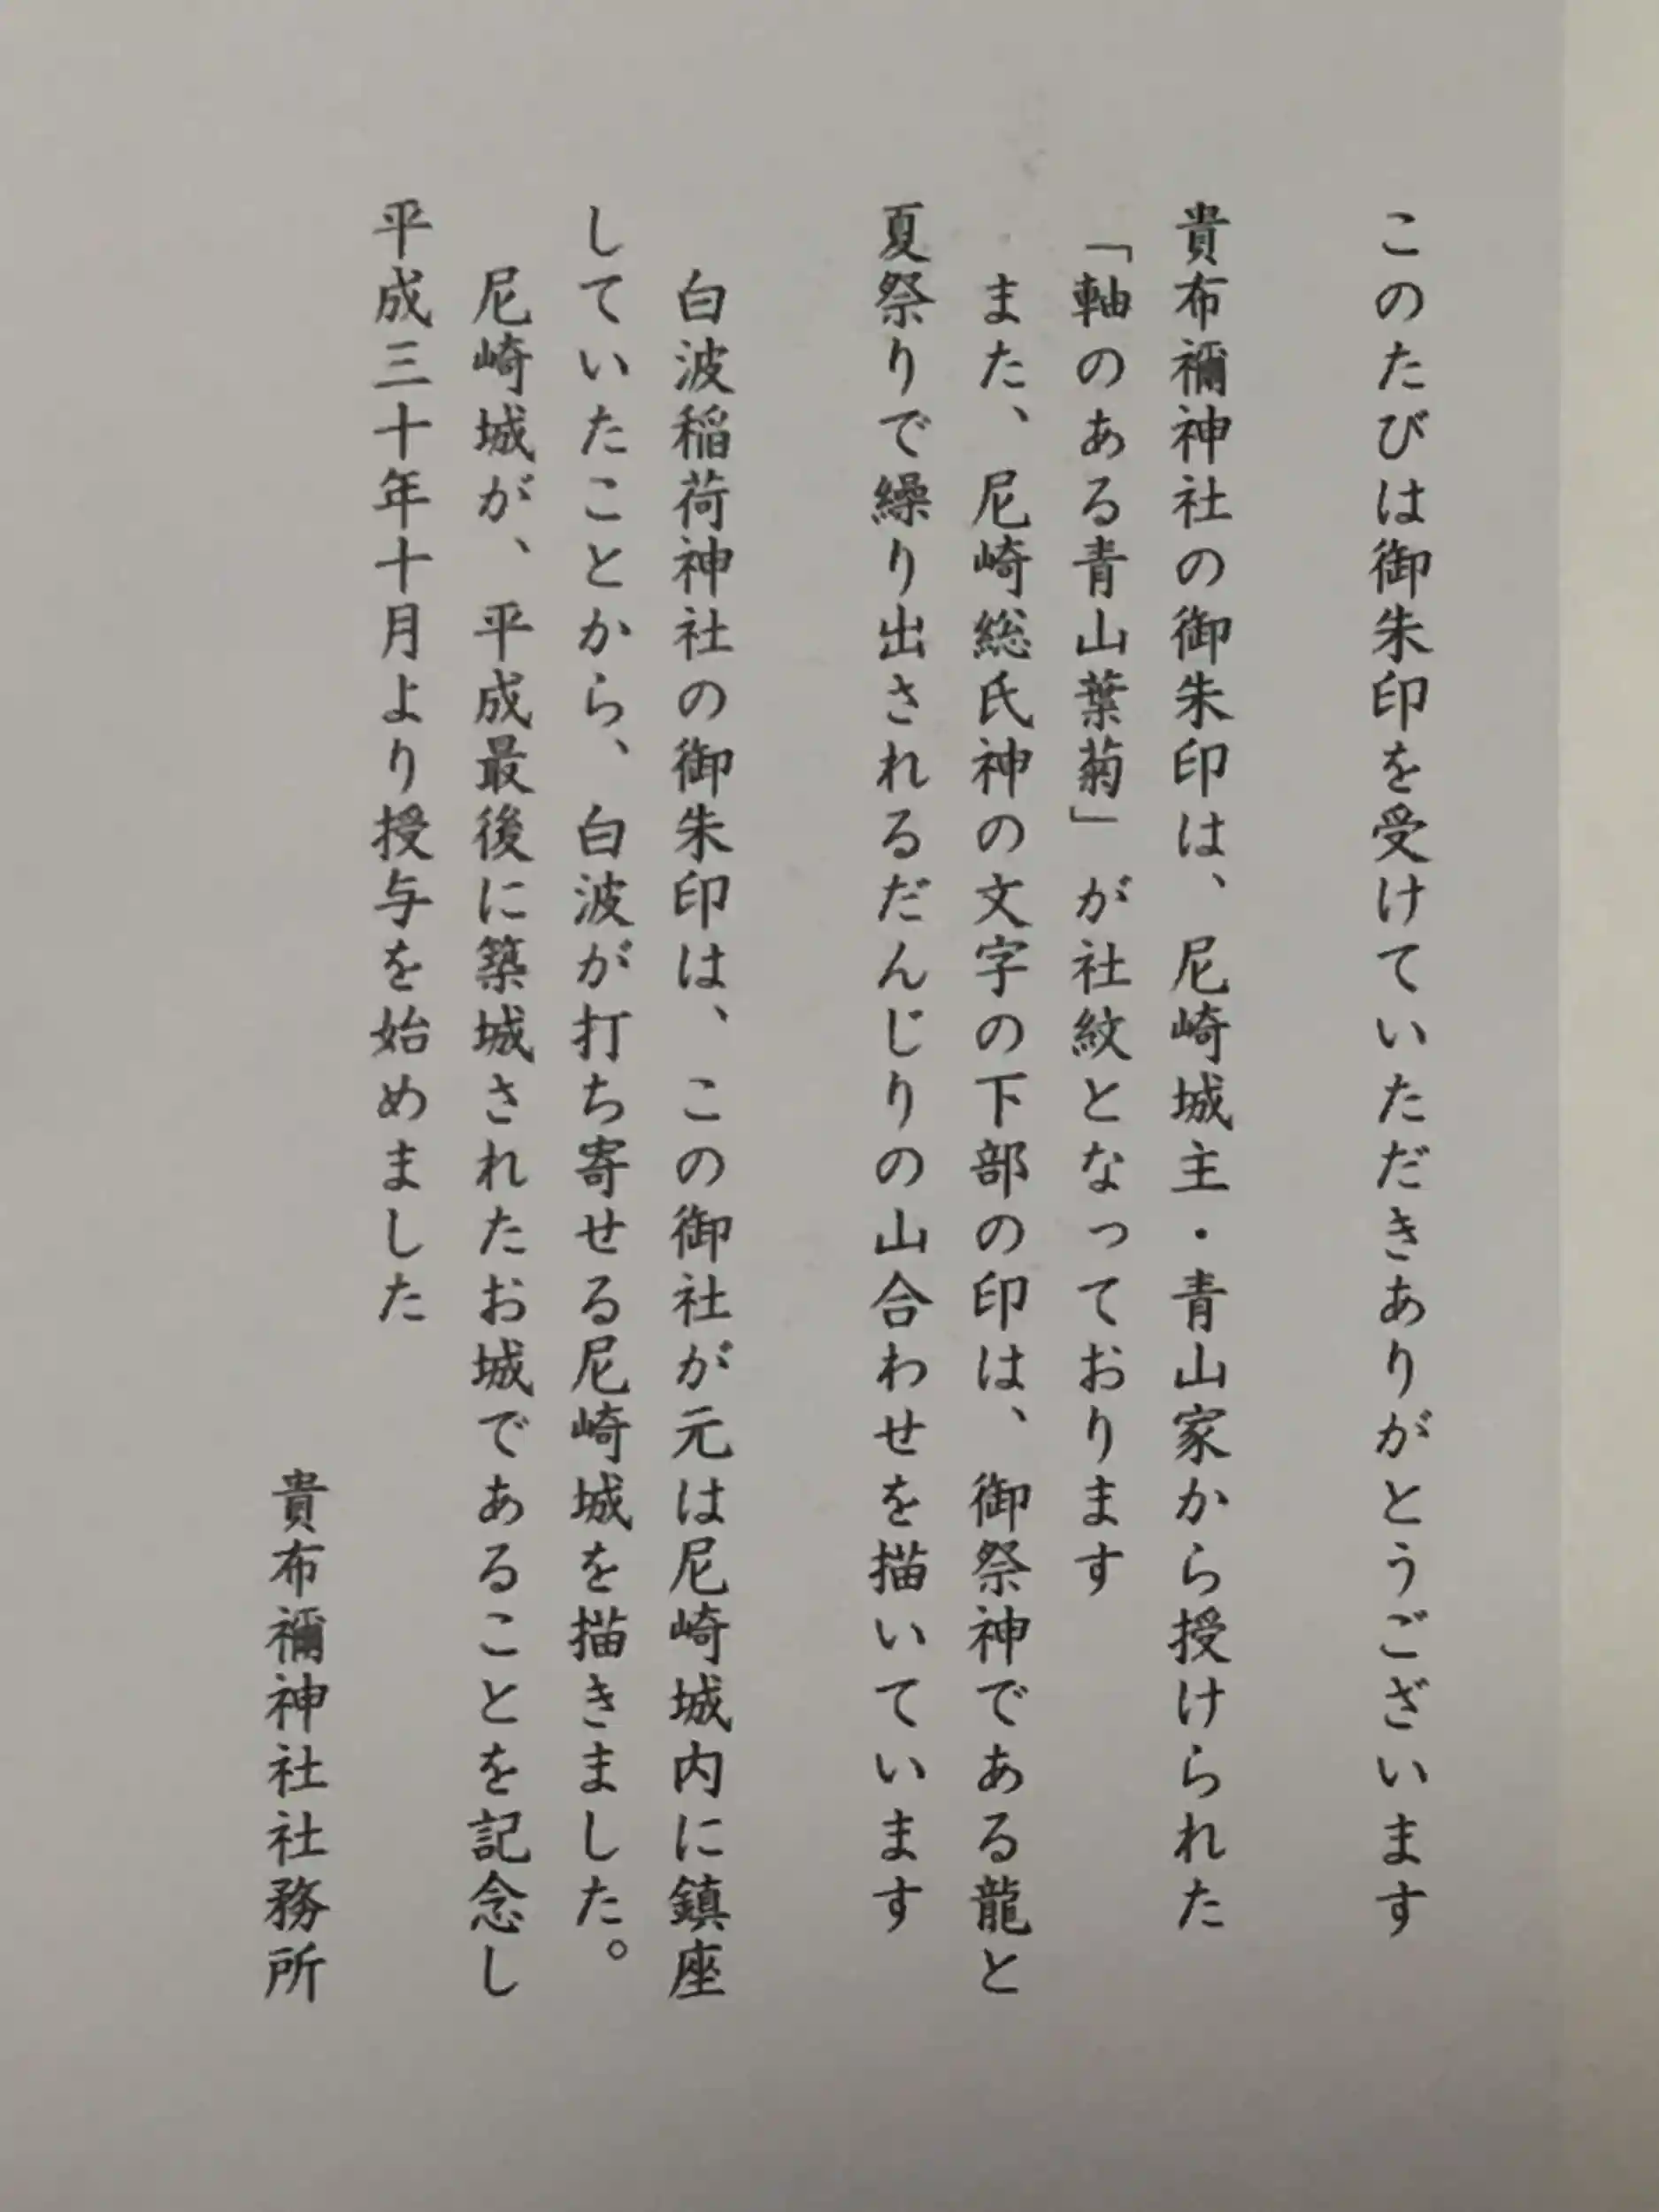 このたびは御朱印を受けていただきありがとうございます
貴布禰神社の御朱印は、尼崎城主・青山家から授けられた
「軸のある青山葉菊」が社紋となっております
また、尼崎総氏神の文字の下部の印は、御祭神である龍と
夏祭りで繰り出されるだんじりの山合わせを描いています
白波稲荷神社の御朱印は、この御社が元は尼崎城内に鎮座
していたことから、白波が打ち寄せる尼崎城を描きました。
尼崎城が、平成最後に築城されたお城であることを記念し
平成三十年十月より授与を始めました
貴布禰神社社務所